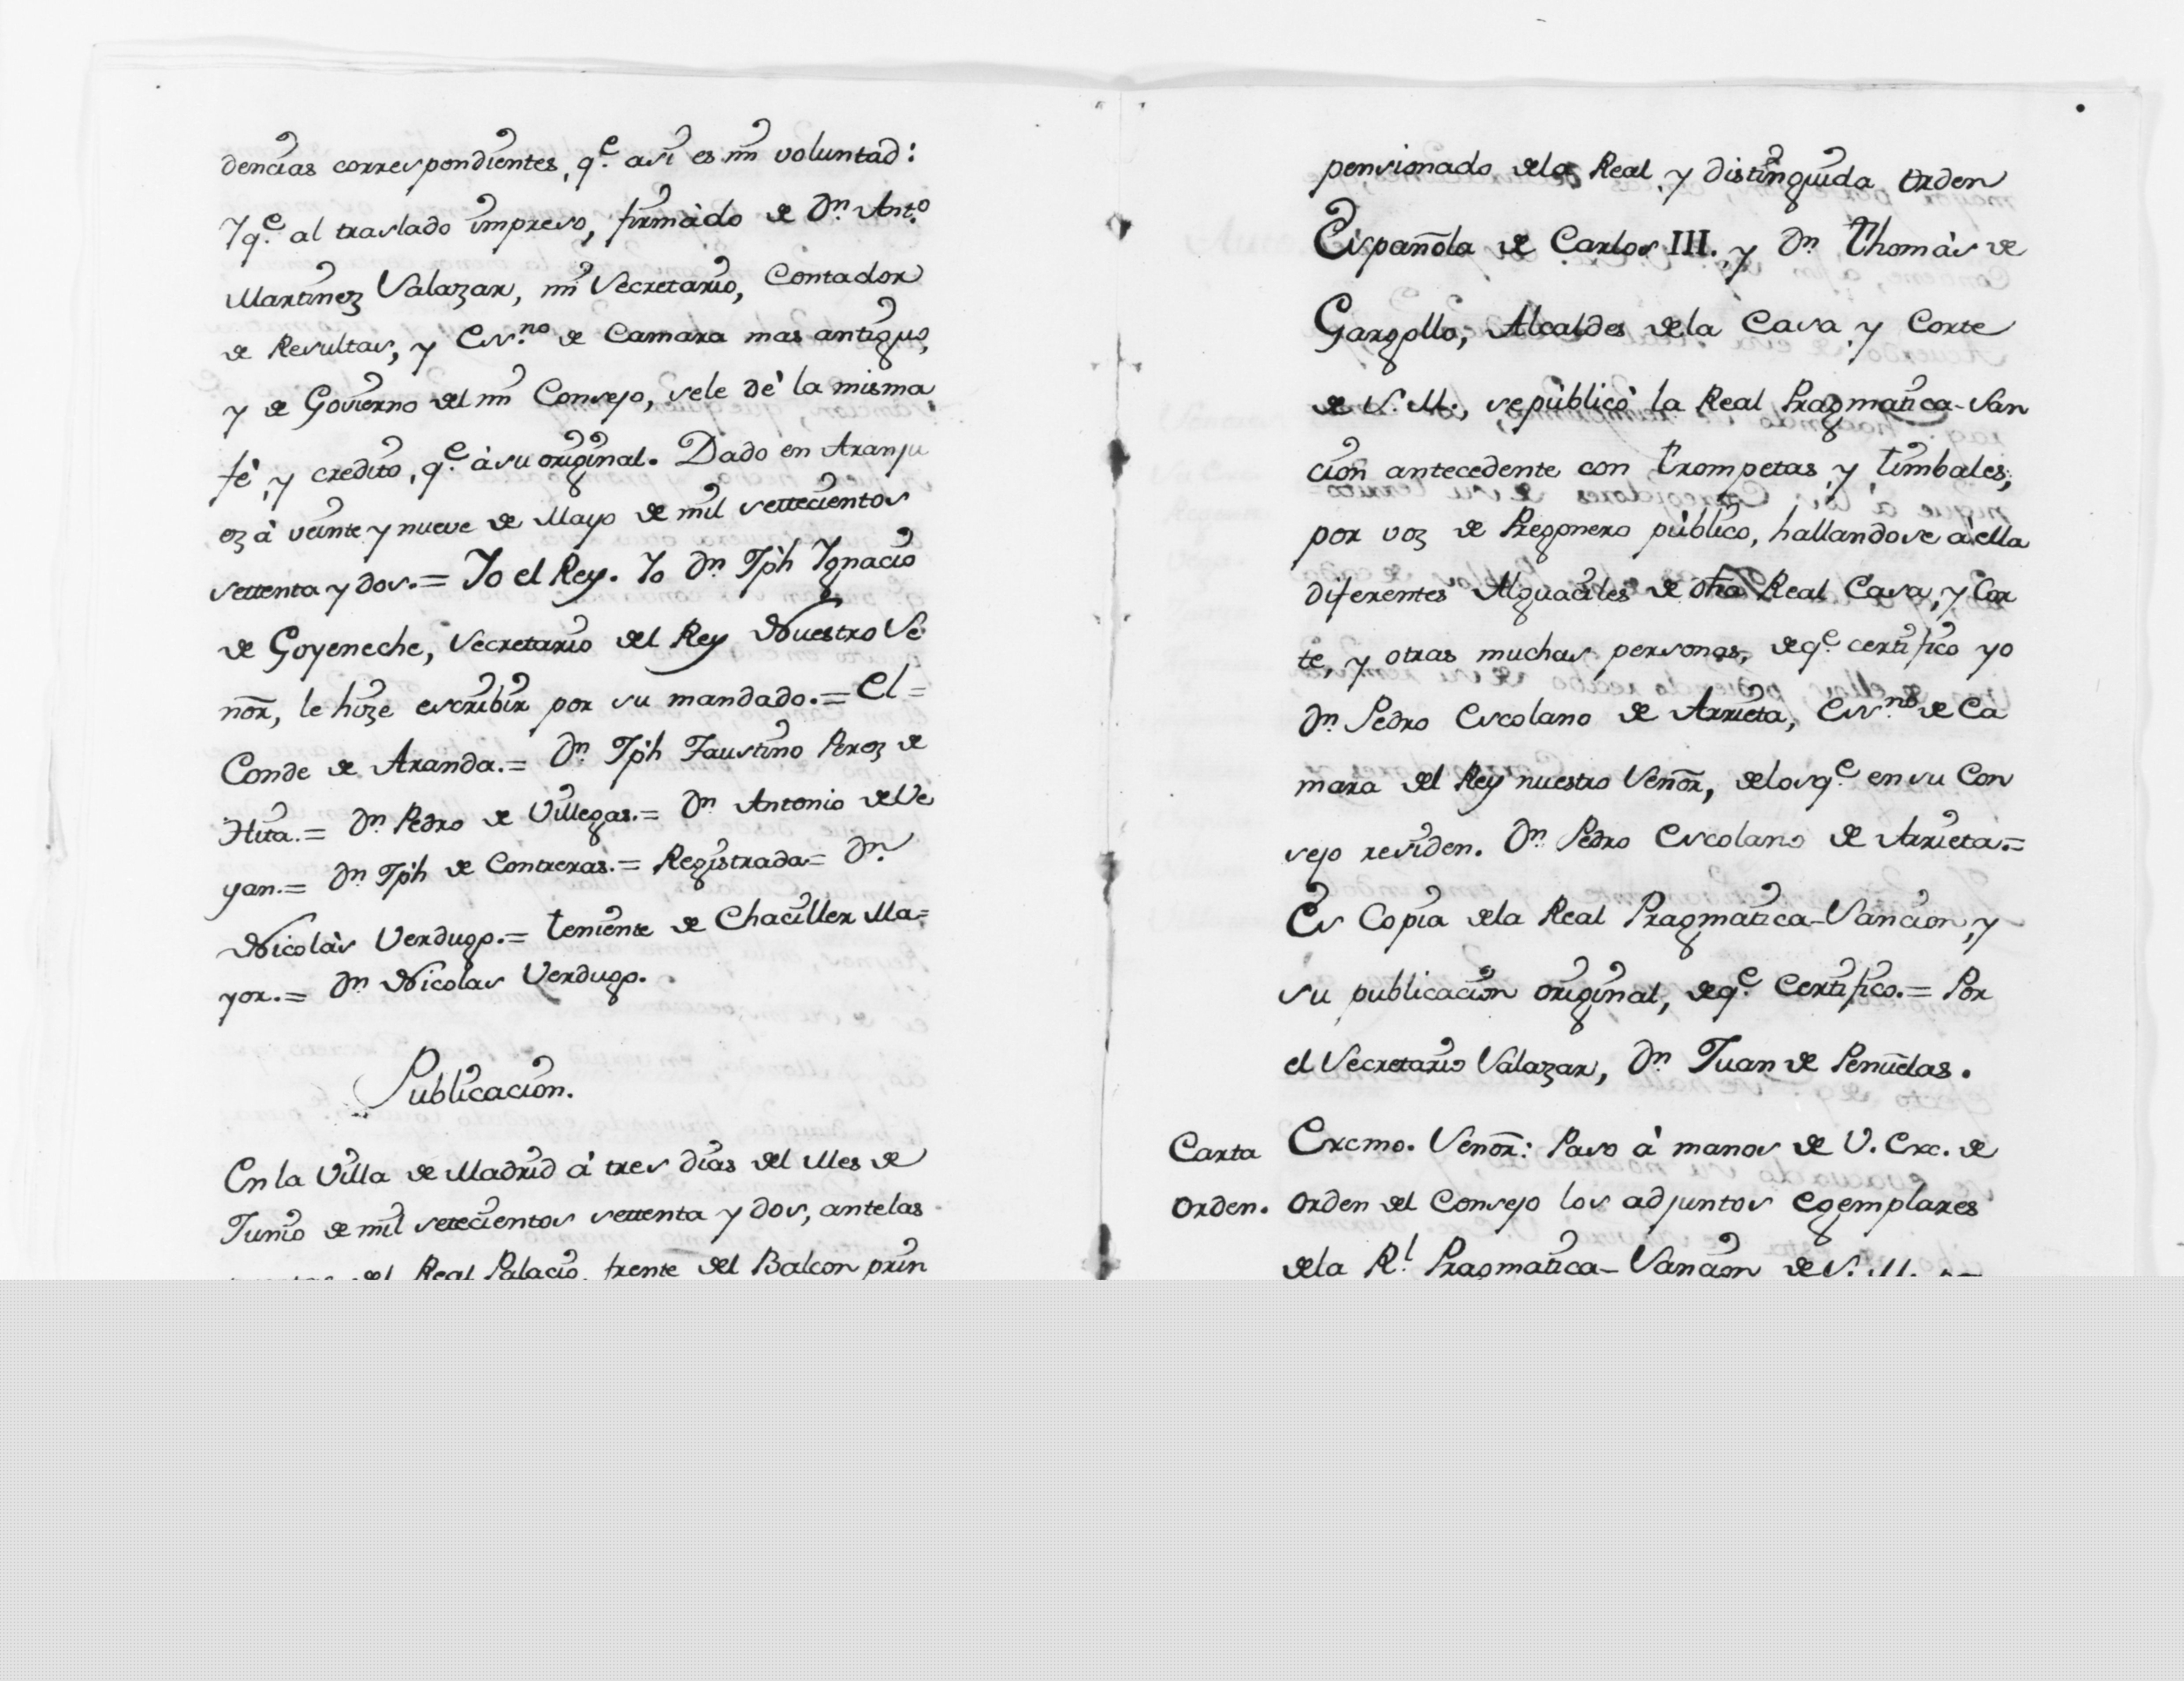 dencias correspondientes, q.e asi es mi voluntad:
Yq.e al traslado impreso, firmàdo de Dn. Ant.o
Martinez Salazar, mi Secretario, Contador
de Resultas, y Ess.no de Camara mas antiguo,
y de Govierno del mi Consejo, sele dè la misma
fè, y credito, q.e à su original. Dado en Aranju
ez à veinte y nueve de Mayo de mil settecientos
settenta y dos.= Yo el Rey. Yo Dn. Jph Ygnacio
de Goyeneche, Secretario del Rey Nuestro Se
ñor, le hize escribir por su mandado.= El=
Conde de Aranda.= Dn. Jph Faustino Perez de
Hita.= Dn. Pedro de Villegas.= Dn. Antonio de Ve
yan.= Dn. Jph de Contreras.= Registrada= Dn.
Nicolàs Verdugo.= teniente de Chaciller Ma=
yor.= Dn. Nicolas Verdugo.
Publicacion.
En la Villa de Madrid à tres dias del Mes de
Junio de mil setecientos settenta y dos, antelas
del Real Palacio, frente del Balcon prin
pensionado dela Real, y distinguida orden
Española de Carlos III. y Dn. Thomàs de
Gargollo, Alcaldes dela Casa y Corte
de S.M., sepùblicò la Real Pragmatica-San
cion antecedente con trompetas, y timbales,
por voz de Pregonero pùblico, hallandose à ella
diferentes Alguaciles de dha Real Casa, y Cor
te, y otras muchas personas, deq.e certifico yo
Dn. Pedro Escolano de Arrieta, Ess.no de Ca
mara del Rey nuestro Señor, delosq.e en su Con
sejo residen. Dn. Pedro Escolano de Arrieta.=
Es Copia dela Real Pragmatica-Sancion, y
su publicacion original, deq.e Certifico.= Por
el Secretario Salazar, Dn. Juan de Peñuelas.
Carta Orden.
Excmo. Señor: Paso à manos de V. Exc. de
orden del Consejo los adjuntos egemplares
dela R.l Pragmatica-Sancion de S. M.